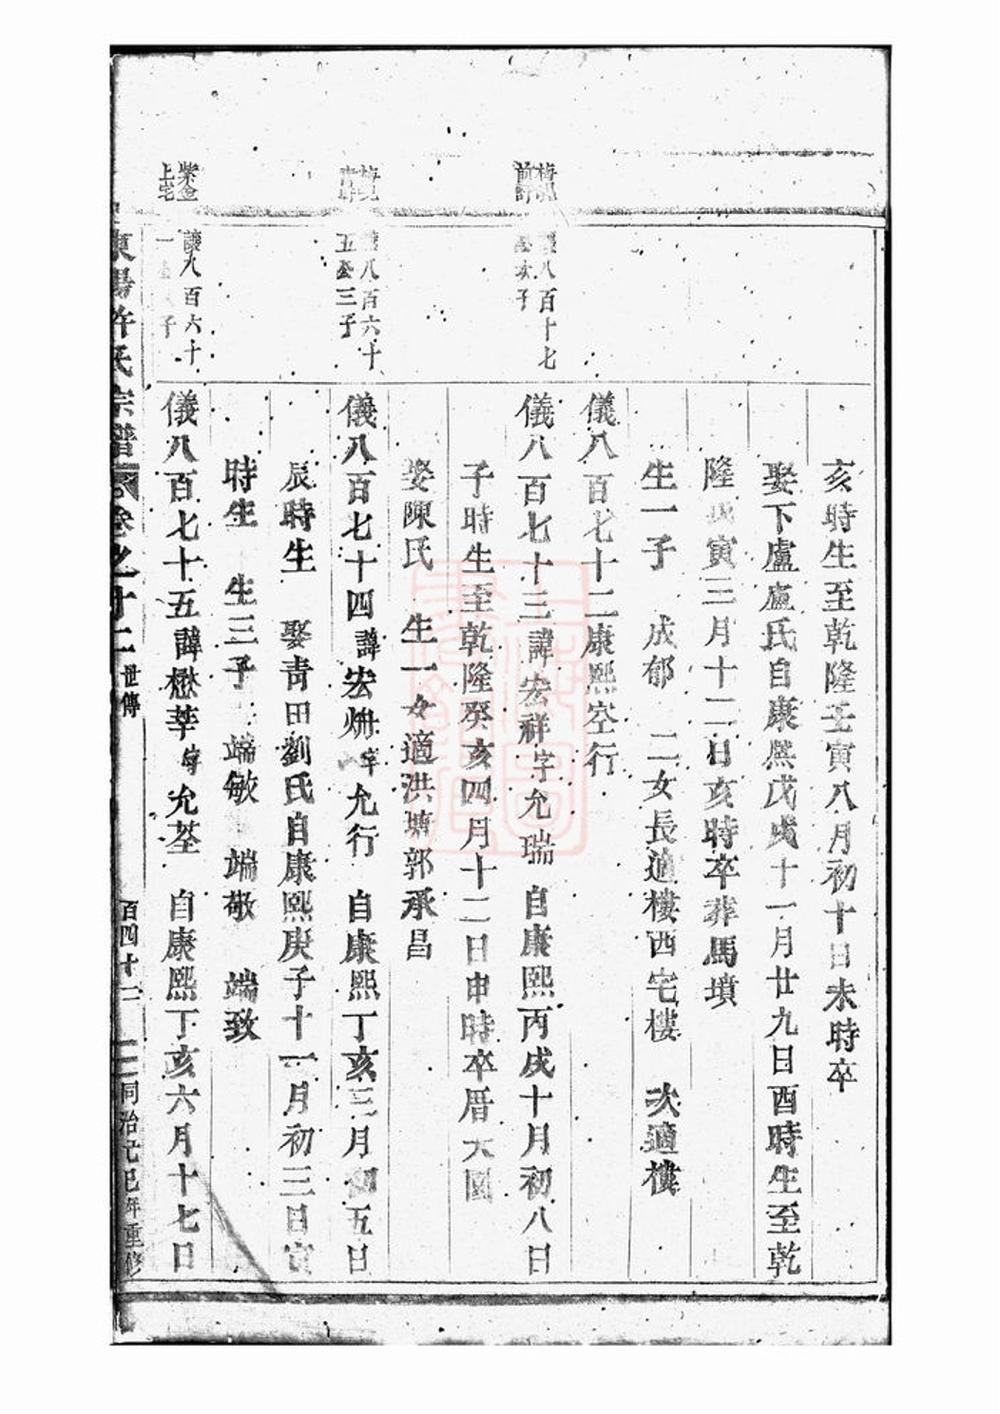 亥時生至乾隆壬寅八月初十日未時卒
娶下盧盧氏自康熙戊戌十一月廿九日酉時生至乾
隆寅三月十二日亥時卒葬馬墳
生一子 成郁 二女長適樓西宅樓 次適樓
儀八百七十二康熙空行
八百十七
次子
儀八百七十三諱宏祥字允瑞 自康熙丙戌十月初八日
子時生至乾隆癸亥四月十二日申時卒厝大園
娶陳氏 生一女適洪塘郭承昌
八百六十
五公三子
儀八百七十四諱宏字允行 自康熙丁亥三月初五日
辰時生 娶青田劉氏自康熙庚子十一月初三日寅
時生 生三子 端敏 端敬 端致
紫金
上宅
讓八百六十
一子
儀八百七十五諱懋莘字允荃 自康熙丁亥六月十七日
東陽許氏宗譜 卷之十二 世傳 百四十一 同治己巳年重修